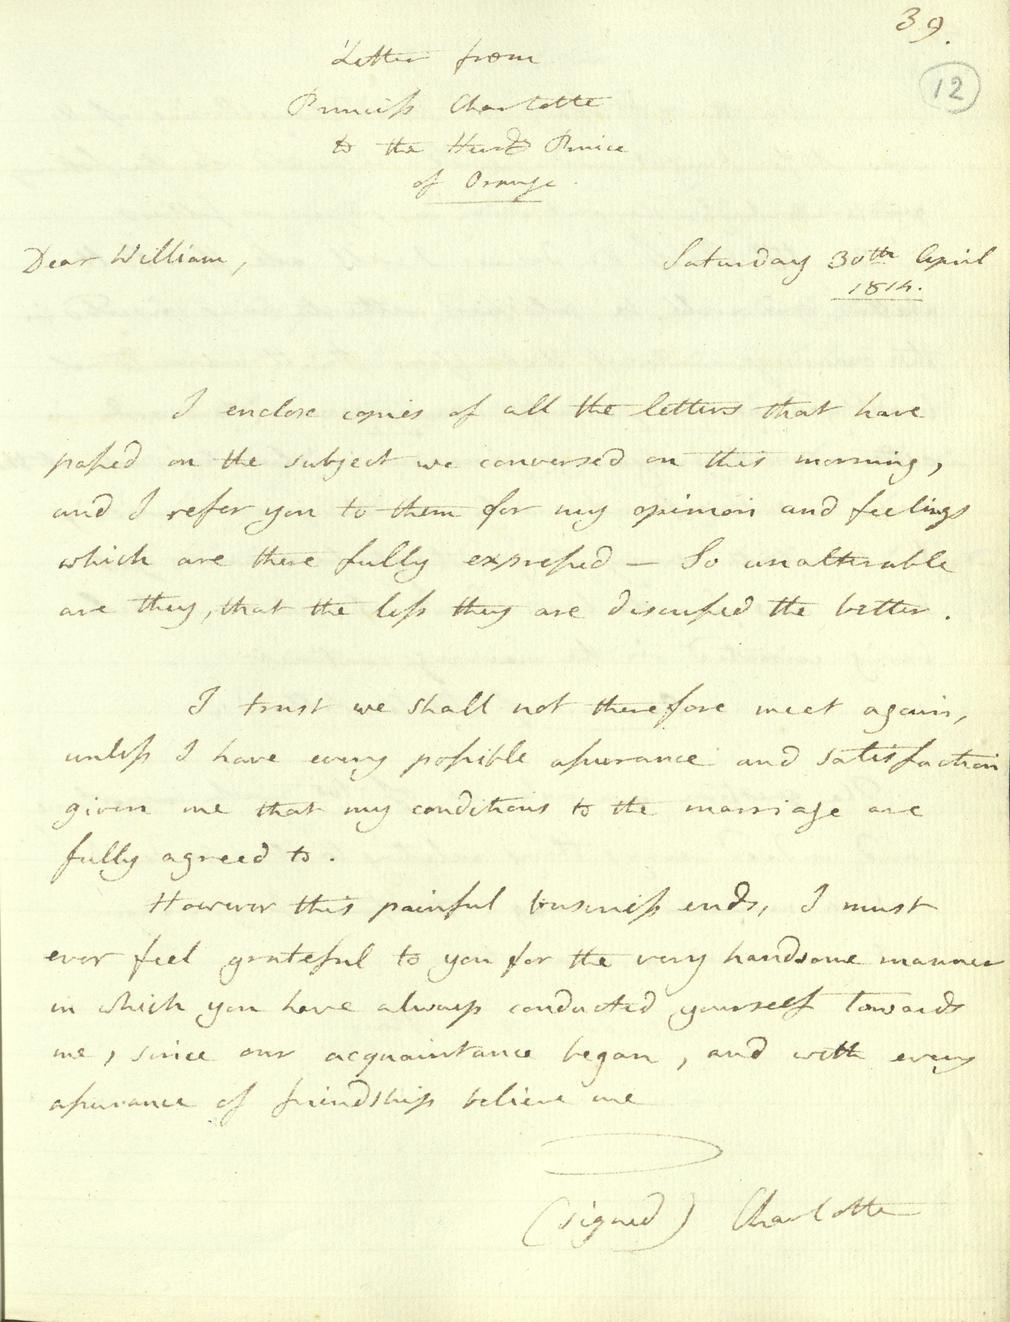 39.
12
Letter from
Princess Charlotte
to the Heredy Prince
of Orange.
Dear William,
Saturday 30th April
1814.
I enclose copies of all the letters that have
passed on the subject we conversed on this morning,
and I refer you to them for my opinion and feelings
which are there fully expressed — So unalterable
are they, that the less they are discussed the better.
I trust we shall not therefore meet again,
unless I have every possible assurance and satisfaction
given me that my conditions to the marriage are
fully agreed to.
However this painful business ends, I must
ever feel grateful to you for the very handsome manner
in which you have always conducted yourself towards
me, since our acquaintance began, and with every
assurance of friendship believe me
(signed) Charlotte